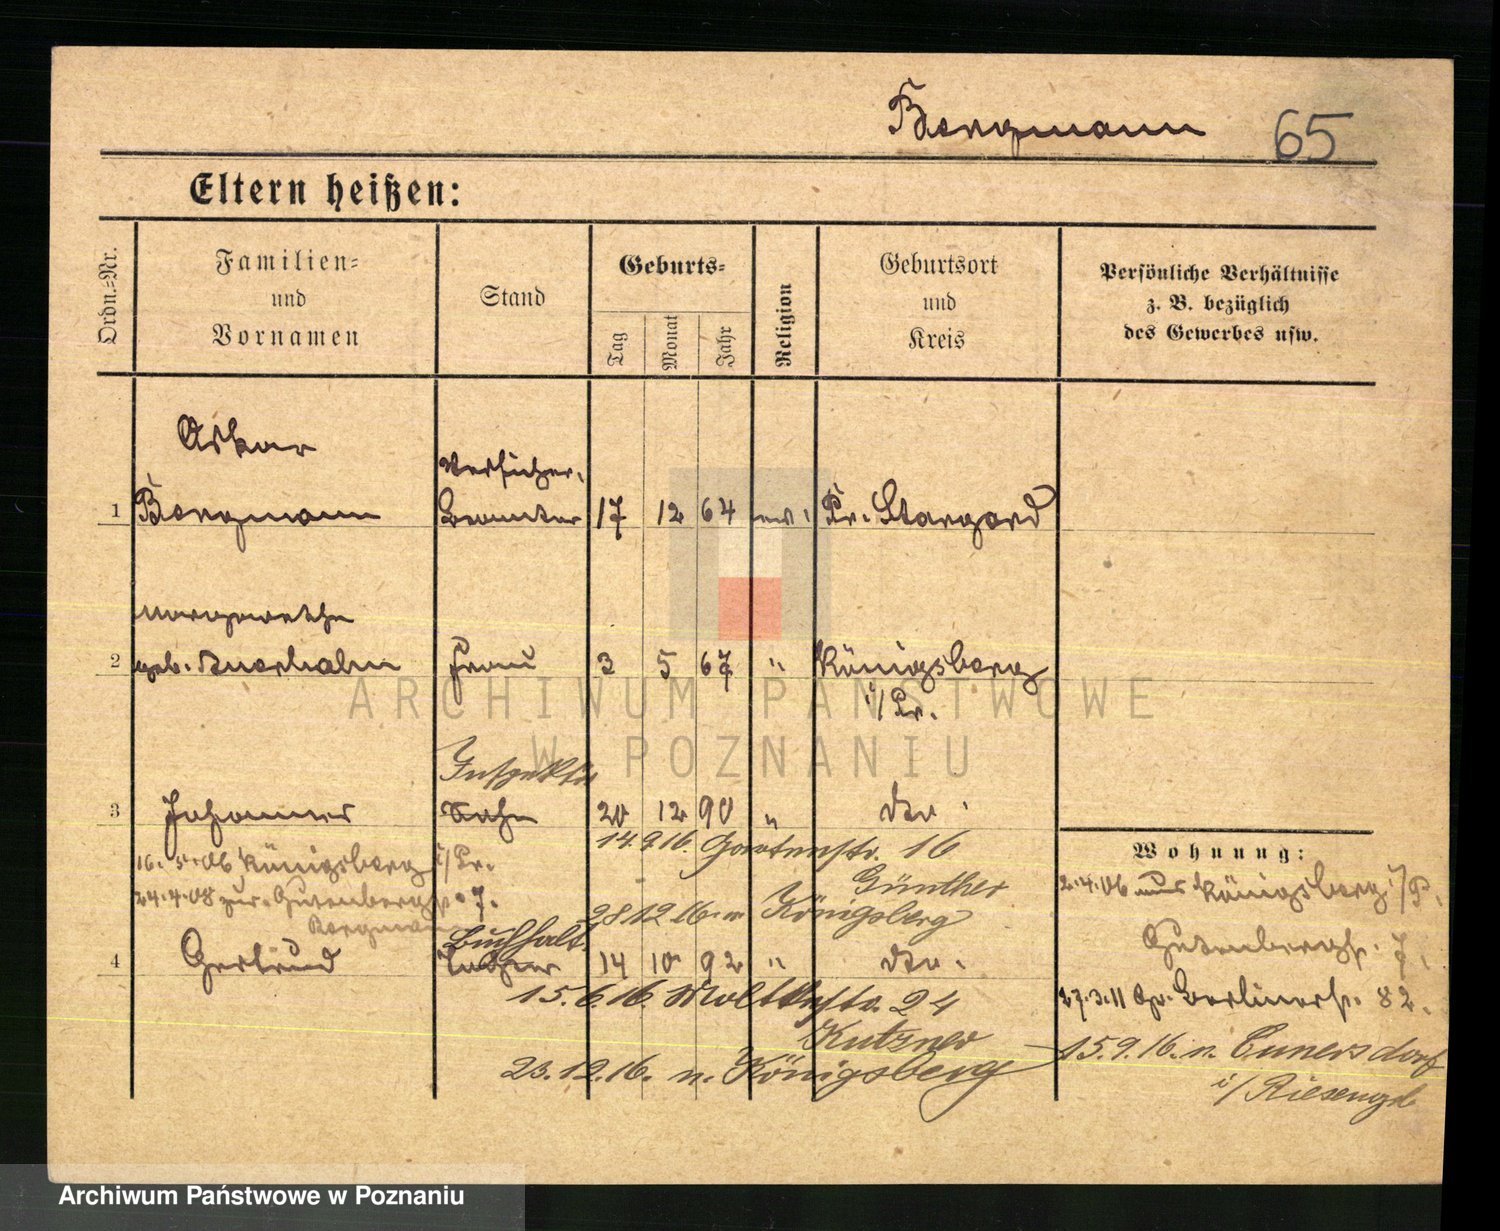 Bergmann 65
Eltern heißen:
Ordn.-Nr.
Familien-
und
Vornamen
Stand
Geburts-
Tag
Monat
Jahr
Religion
Geburtsort
und
Kreis
Persönliche Verhältnisse
z. B. bezüglich
des Gewerbes usw.
Oskar
Versicher.
1 Bergmann Beamter 17 12 64 ev. Pr. Stargard
Margarethe
2 geb. Frau 3 5 67 " Königsberg
i/Pr.
Inspektor
3 Johannes Sohn 20 12 90 " dto.
14.9.16. Gartenstr. 16
Günther
28.12.16. n. Königsberg
16.5.06 Königsberg i/Pr.
24.4.08 zur. Gutenbergstr. 7.
Bergmann
Buchhalt.
4 Gertrud Tochter 14 10 92 " dto.
15.6.16. Moltkestr. 24
Kutzner
23.12.16. n. Königsberg
Wohnung:
2.4.06 aus Königsberg i/P.
Gutenbergstr. 7.
27.3.11 Gr. Berlinerstr. 82.
15.9.16. n. Cunersdorf
i/Riesengb
ARCHIWUM PAŃSTWOWE
W POZNANIU
Archiwum Państwowe w Poznaniu